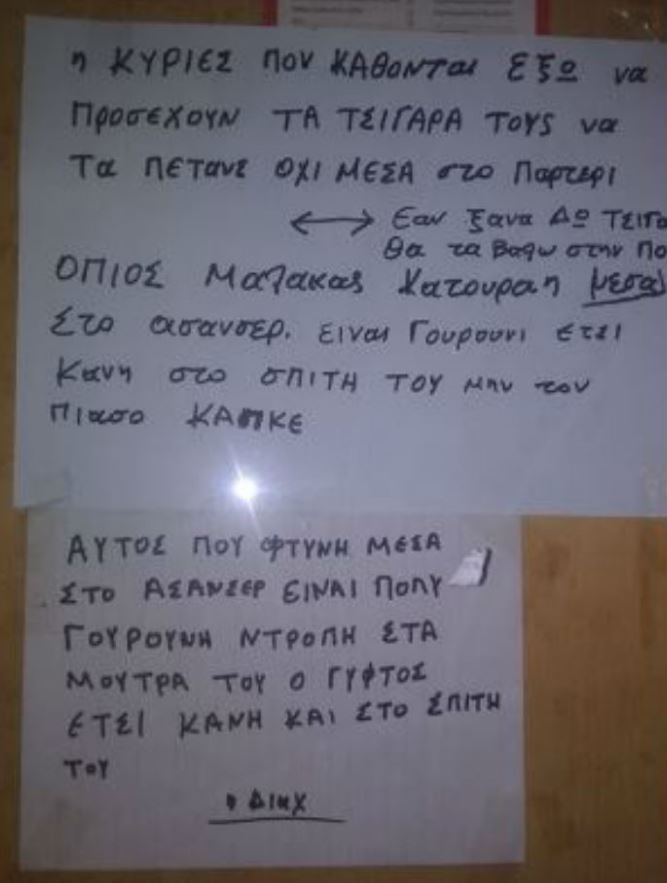 η ΚΥΡΙΕΣ ΠΟΥ ΚΑΘΟΝΤαι ΕξΩ να
ΠροσεΧΟΥΝ ΤΑ ΤΣΙΓΑΡΑ ΤΟΥς να
Τα ΠΕΤανε ΟΧΙ ΜΕΣΑ στο Παρτερι
↔ Εαν ξανα Δω
Θα τα βαψω στην
ΟΠΙΟΣ Μαλακας Κατουραη μεσα
Στο ασανσερ. ειναι Γουρουνι ετσι
Κανη στο σΠΙΤΗ ΤΟΥ μην τον
Πιασο ΚΑΠΚΕ
ΑΥΤΟΣ ΠΟΥ ΦΤΥΝΗ ΜΕΣΑ
ΣΤΟ ΑΣΑΝΣΕΡ ΕΙΝΑΙ ΠΟΛΥ
ΓΟΥΡΟΥΝΗ ΝΤΡΟΠΗ ΣΤΑ
ΜΟΥΤΡΑ ΤΟΥ Ο ΓΥΦΤΟΣ
ΕΤΣΙ ΚΑΝΗ ΚΑΙ ΣΤΟ ΣΠΙΤΗ
ΤΟΥ
η ΔΙαχ